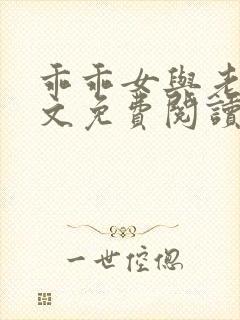 乖乖女與老
文免費閱讀
一世倥傯